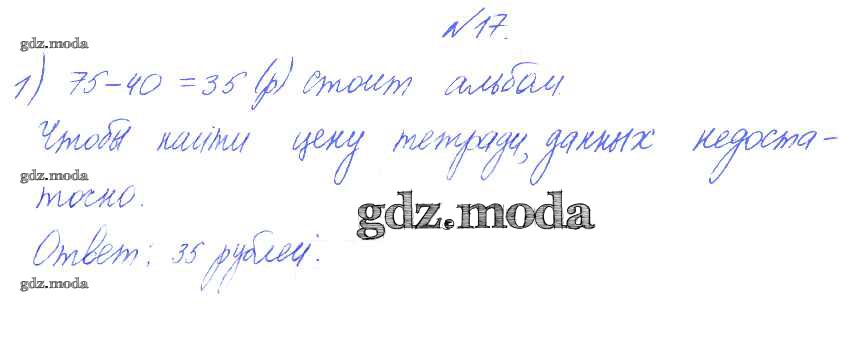 №17.
gdz.moda
1) 75-40=35 (р) стоит альбом
Чтобы найти цену тетради, данных недоста-
gdz.moda
точно.
gdz.moda
Ответ: 35 рублей.
gdz.moda